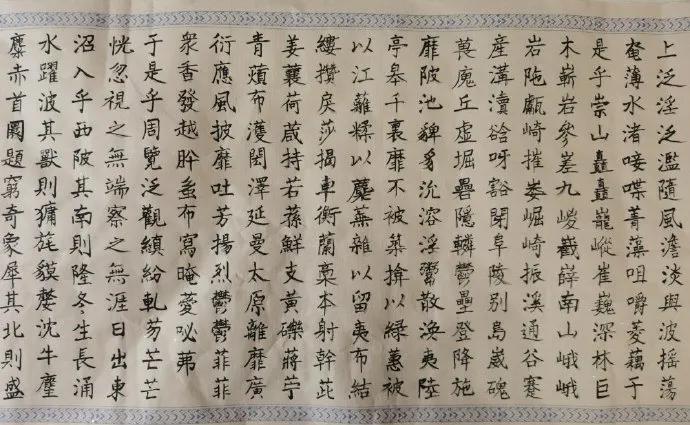 上泛淫泛濫隨風澹淡與波搖蕩
奄薄水渚唼喋菁藻咀嚼菱藕于
是乎崇山矗矗巃嵸崔巍深林巨
木嶄岩參差九嵕嶻嶭南山峨峨
岩陁甗崎摧崣崛崎振溪通谷蹇
產溝瀆谽呀豁閉阜陵別島崴磈
丘虛堀礨隱轔鬱壘登降施
靡陂池貏豸沇溶淫鬻散渙夷陸
亭皋千裏靡不被築揜以綠蕙被
以江蘺糅以蘪蕪雜以留夷布結
縷攢戾莎揭車衡蘭稾本射幹茈
姜蘘荷葴持若蓀鮮支黃礫蔣苧
青薠布濩閎澤延曼太原離靡廣
衍應風披靡吐芳揚烈鬱鬱菲菲
眾香發越肸布寫晻薆咇茀
于是乎周覽泛觀縝紛軋芴芒芒
恍忽視之無端察之無涯日出東
沼入乎西陂其南則隆冬生長涌
水躍波其獸則旄貘沈牛麈
麋赤首圜題窮奇象犀其北則盛